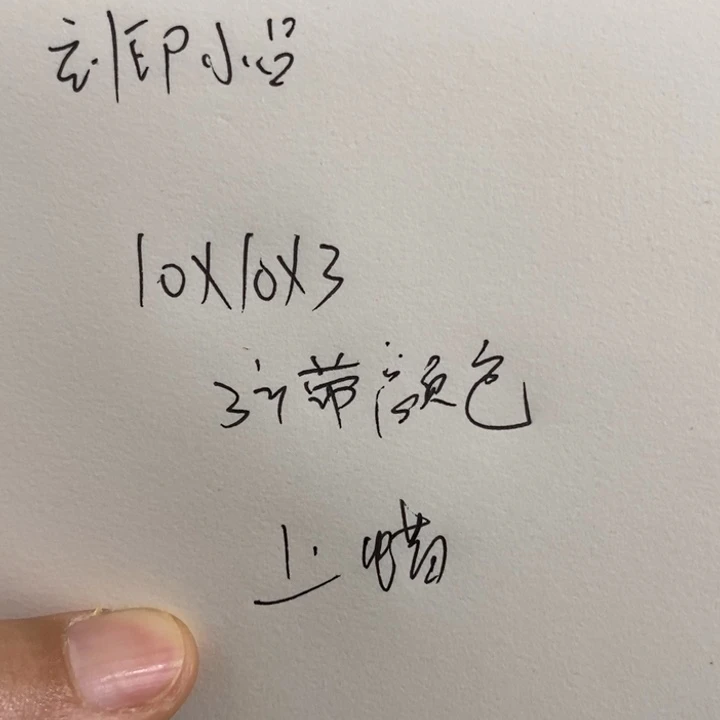 刻印小沿
10X10X3
3字带颜色
上蜡